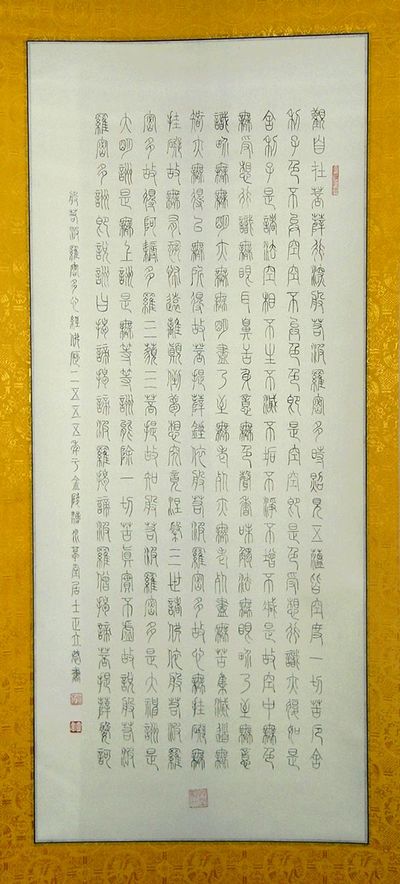 觀自在菩薩行深般若波羅蜜多時照見五蘊皆空度一切苦厄舍
利子色不異空空不異色色即是空空即是色受想行識亦復如是
舍利子是諸法空相不生不滅不垢不淨不增不減是故空中無色
無受想行識無眼耳鼻舌身意無色聲香味觸法無眼界乃至無意
識界無無明亦無無明盡乃至無老死亦無老死盡無苦集滅道無
智亦無得以無所得故菩提薩埵依般若波羅蜜多故心無罣礙無
罣礙故無有恐怖遠離顛倒夢想究竟涅槃三世諸佛依般若波羅
蜜多故得阿耨多羅三藐三菩提故知般若波羅蜜多是大神咒是
大明咒是無上咒是無等等咒能除一切苦真實不虛故說般若波
羅蜜多咒即說咒曰揭諦揭諦波羅揭諦波羅僧揭諦菩提薩婆訶
般若波羅蜜多心經佛曆二五五五年于金陵居士正立書